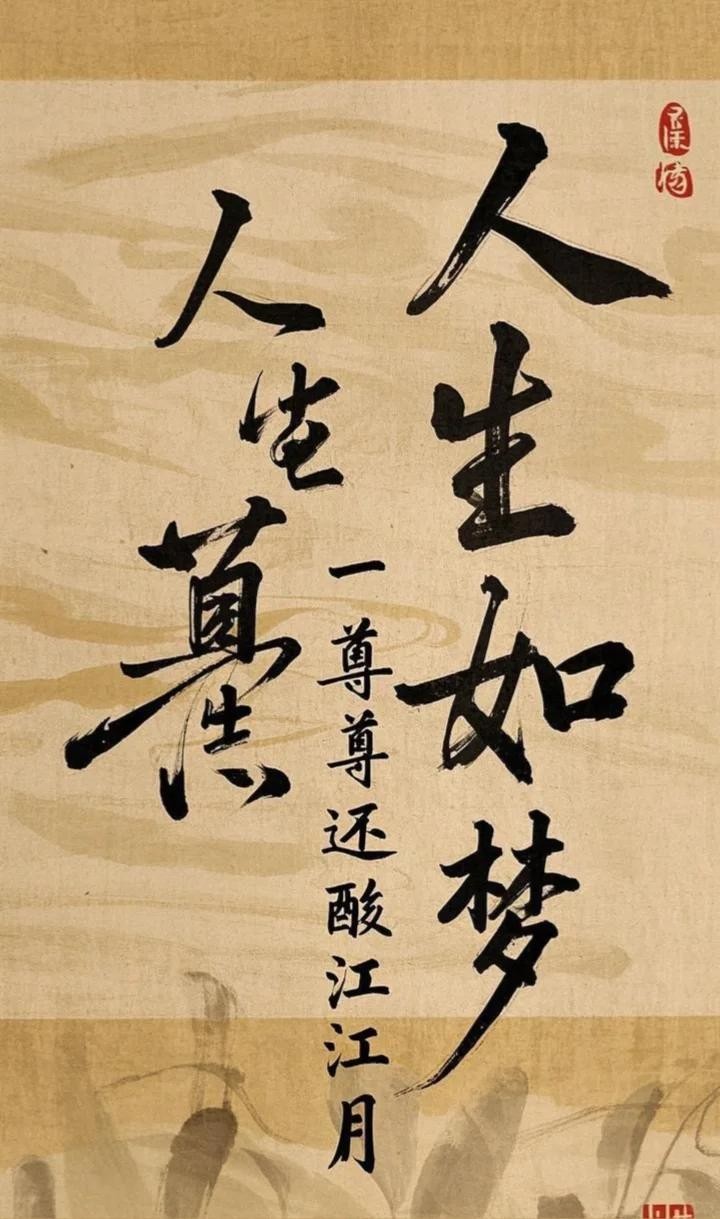 人生如梦
一尊尊还酸江江月
人生